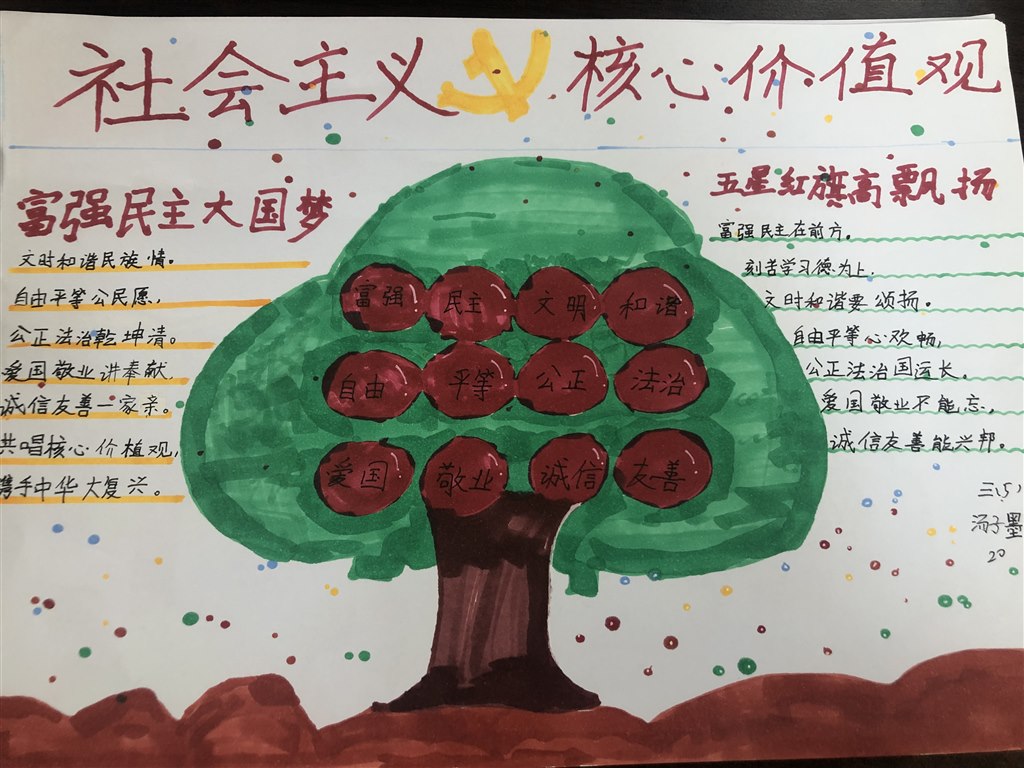 社会主义核心价值观
富强民主大国梦
文时和谐民族情。
自由平等公民愿,
公正法治乾坤清。
爱国敬业讲奉献,
诚信友善一家亲。
共唱核心价植观,
携手中华大复兴。
富强 民主 文明 和谐
自由 平等 公正 法治
爱国 敬业 诚信 友善
五星红旗高飘扬
富强民主在前方。
刻苦学习德为上.
文时和谐要颂扬。
自由平等心欢畅,
公正法治国运长。
爱国敬业不能忘,
诚信友善能兴邦。
三(5)
汤子墨
20